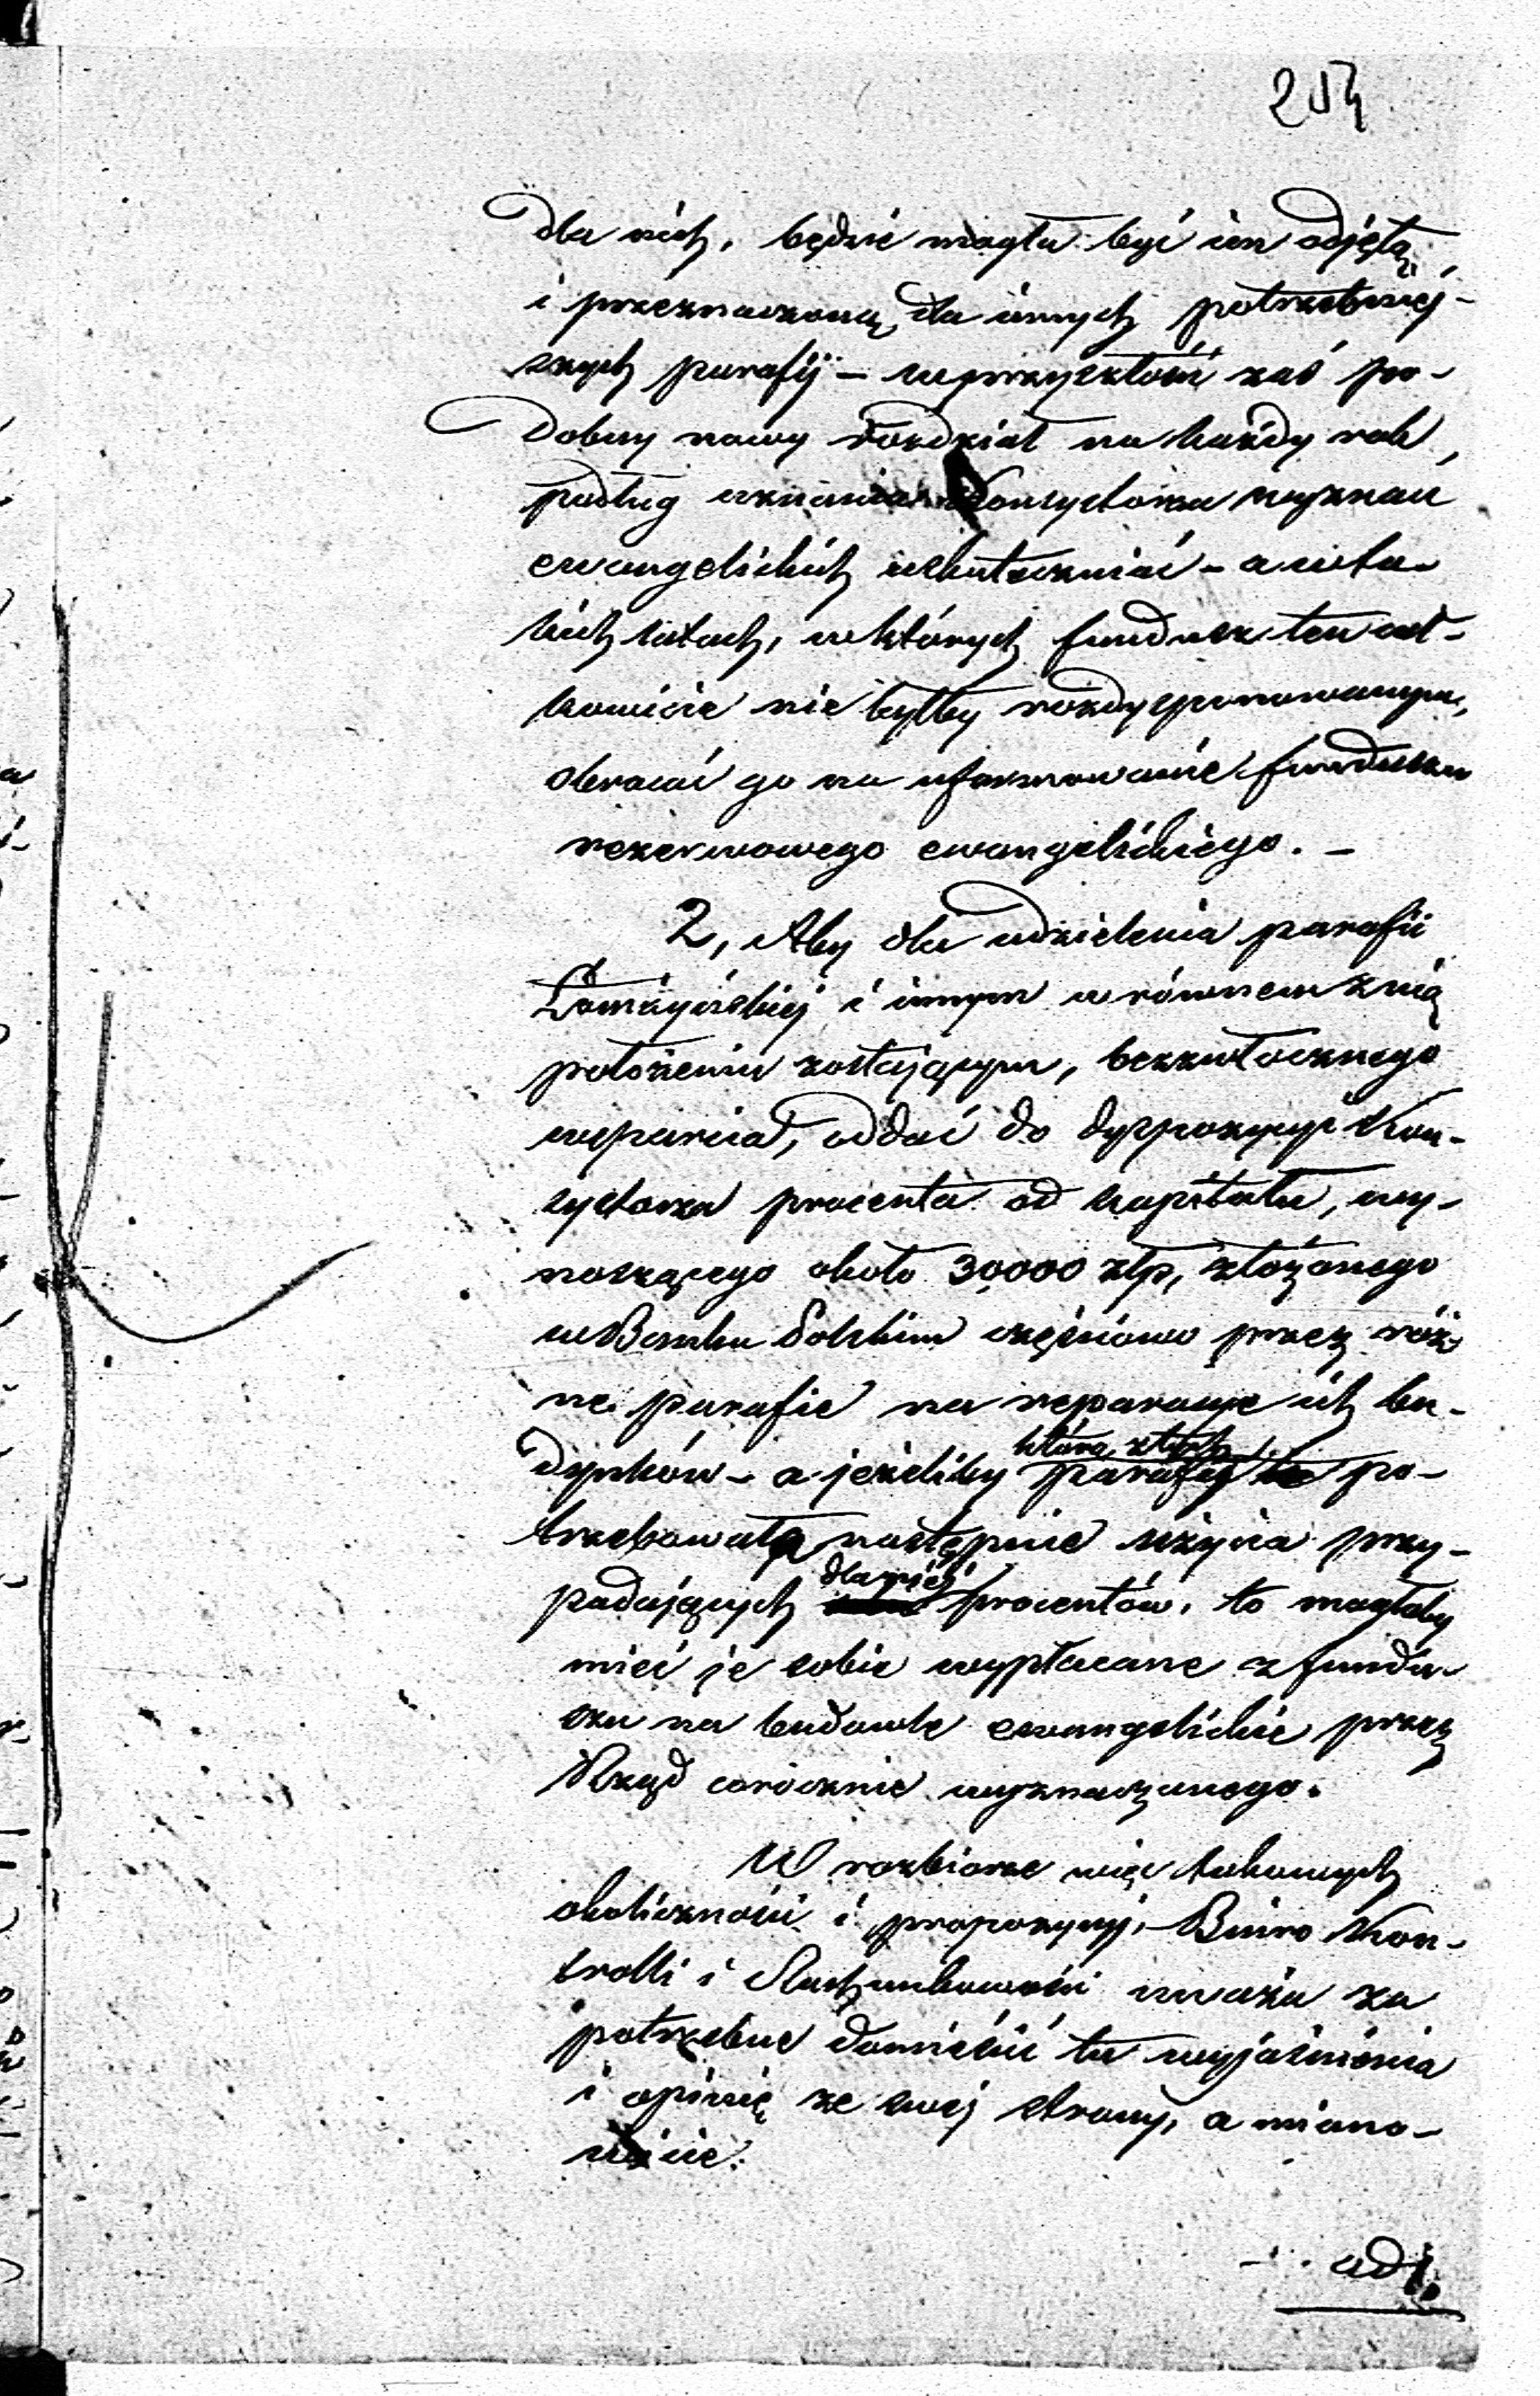 204
dla nich, będzie mogła być im odjętą
i przeznaczoną dla innych potrzebniej-
szych parafij – wprzyszłość zaś po-
dobny nowy rozdział na każdy rok,
podług uznania Konsystorza wyznań
ewangelickich uskuteczniać – a w ta-
kich latach, w których fundusz ten cał-
kowicie nie byłby rozdysponowanym,
obracać go na uformowanie funduszu
rezerwowego ewangelickiego. –
2, Aby dla udzielenia parafii
Łomżyńskiej i innym w równem znią
położeniu zostającym, bezzwłocznego
wsparcia, oddać do dyspozycyi Kon-
systorza procenta od kapitału, wy-
noszącego około 30,000 złp, złożonego
w Banku Polskim częściowo przez róż-
ne parafie na reparacye ich bu-
dynków – a jeżeliby parafie te po-
która z tych
trzebowała następnie użycia przy-
dla niej
padających procentów, to mogłaby
mieć je sobie wypłacane z fundu-
szu na budowle ewangelickie przez
Rząd corocznie wyznaczanego.
W rozbiorze więc takowych
okoliczności i propozycyj, Biuro Kon-
trolli i Rachunkowości uważa za
potrzebne domieścić tu wyjaśnienia
i opinię ze swej strony, a miano-
wicie:
ad 1.